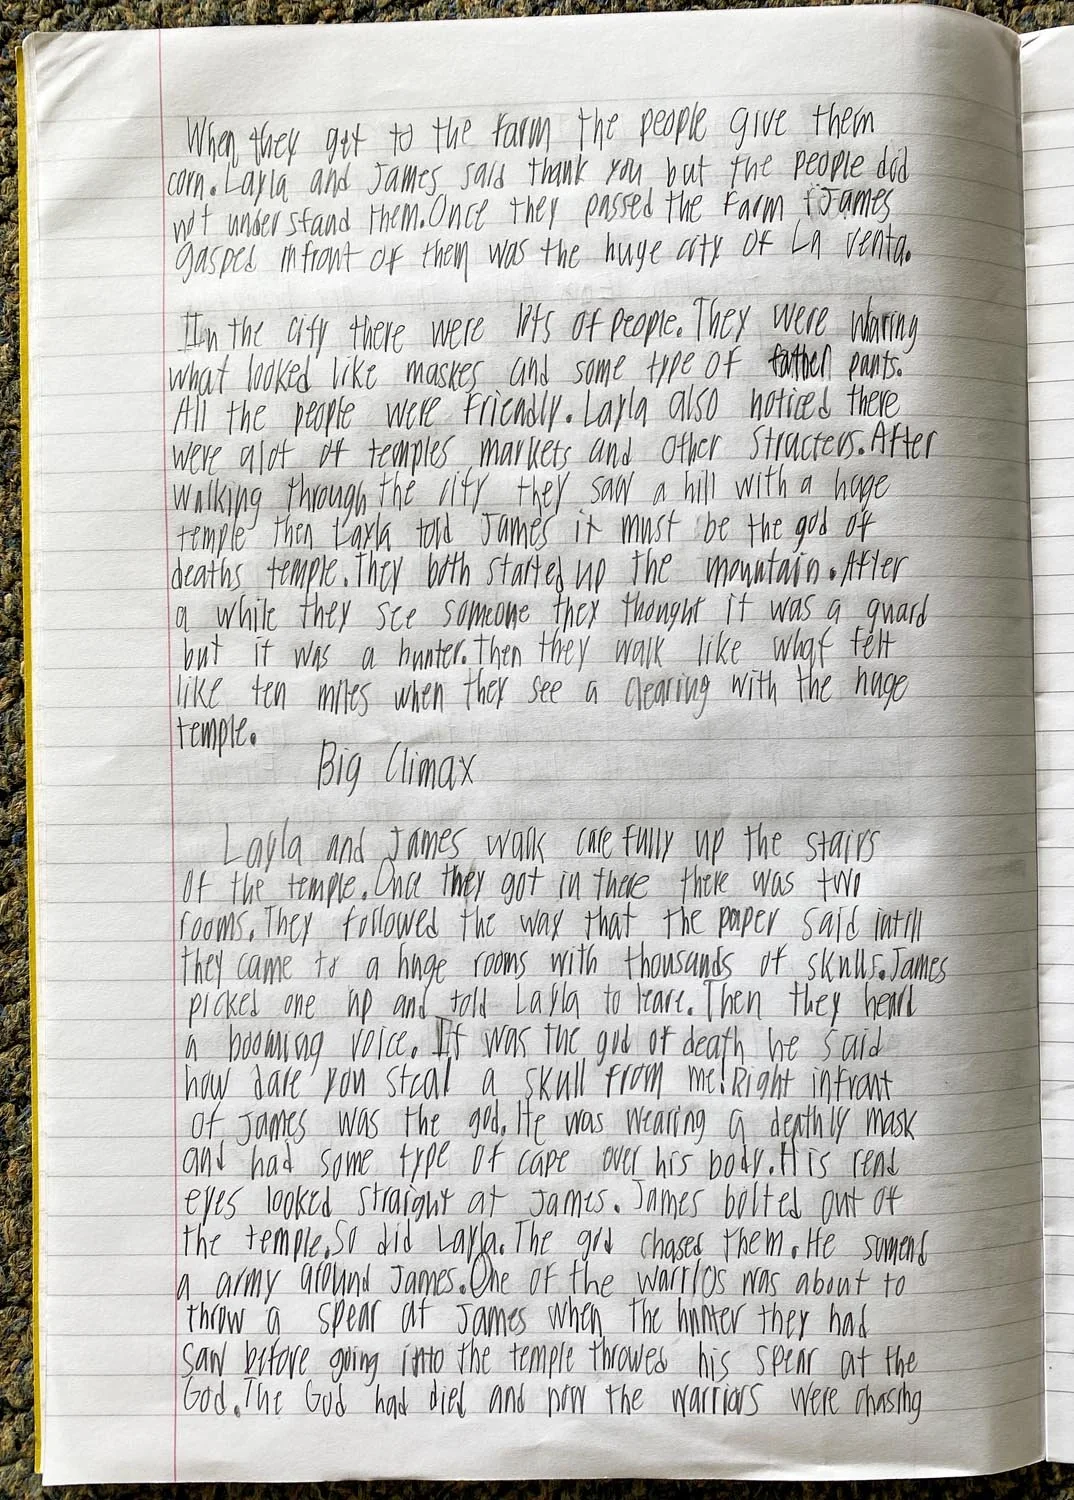 When they get to the farm the people give them
corn. Layla and James said thank you but the people did
not understand them. Once they passed the farm James
gasped infront of them was the huge city of La venta.
In the city there were lots of people. They were waring
what looked like maskes and some type of father pants.
All the people were friendly. Layla also noticed there
were alot of temples markets and other structers. After
walking through the city they saw a hill with a huge
temple then Layla told James it must be the god of
deaths temple. They both started up the mountain. After
a while they see someone they thought it was a guard
but it was a hunter. Then they walk like what felt
like ten miles when they see a clearing with the huge
temple.
Big Climax
Layla and James walk carefully up the stairs
of the temple. Once they got in there there was two
rooms. They followed the way that the paper said intill
they came to a huge rooms with thousands of skulls. James
picked one up and told Layla to leave. Then they heard
a booming voice. It was the god of death he said
how dare you steal a skull from me! Right infront
of James was the god. He was wearing a deathly mask
and had some type of cape over his body. His read
eyes looked straight at James. James bolted out of
the temple. So did Layla. The god chased them. He sumend
a army around James. One of the warrios was about to
throw a spear at James when the hunter they had
saw before going into the temple throwed his spear at the
God. The God had died and now the warriors were chasing